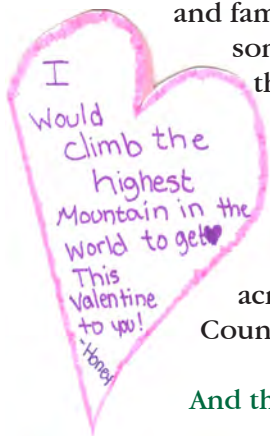 and fam
I
Would
climb the
highest
Mountain in the
world to get♥
This
Valentine
to you!
-Honey
Coun
And th